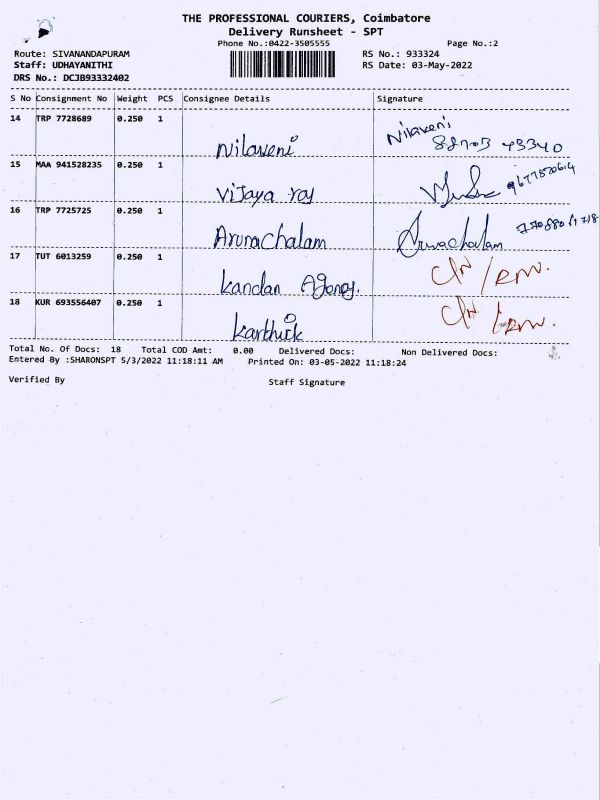 THE PROFESSIONAL COURIERS, Coimbatore
Delivery Runsheet - SPT
Phone No.:0422-3505555 Page No.:2
Route: SIVANANDAPURAM RS No.: 933324
Staff: UDHAYANITHI RS Date: 03-May-2022
DRS No.: DCJB93332402
S No Consignment No Weight PCS Consignee Details Signature
14 TRP 7728689 0.250 1
Nilaveni Nilaveni
88703 48340
15 MAA 941528235 0.250 1
Vijaya raj
16 TRP 7725725 0.250 1
Arunachalam Arunachalam
17 TUT 6013259 0.250 1
Kandan Agency. C/N
18 KUR 693556407 0.250 1
Karthick C/N
Total No. Of Docs: 18 Total COD Amt: 0.00 Delivered Docs: Non Delivered Docs:
Entered By :SHARONSPT 5/3/2022 11:18:11 AM Printed On: 03-05-2022 11:18:24
Verified By Staff Signature